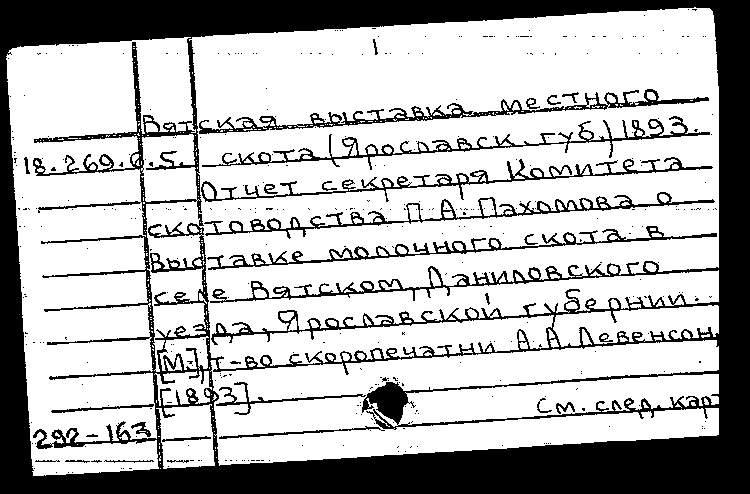 Вятская выставка местного
18.269.6.5. скота (Ярославск. губ.) 1893.
Отчет секретаря Комитета
скотоводства П.А. Пахомова о
выставке молочного скота в
селе Вятском, Даниловского
уезда, Ярославской губернии.
[М.], т-во скоропечатни А.А. Левенсон,
[1893].
См. след. кар
292-163